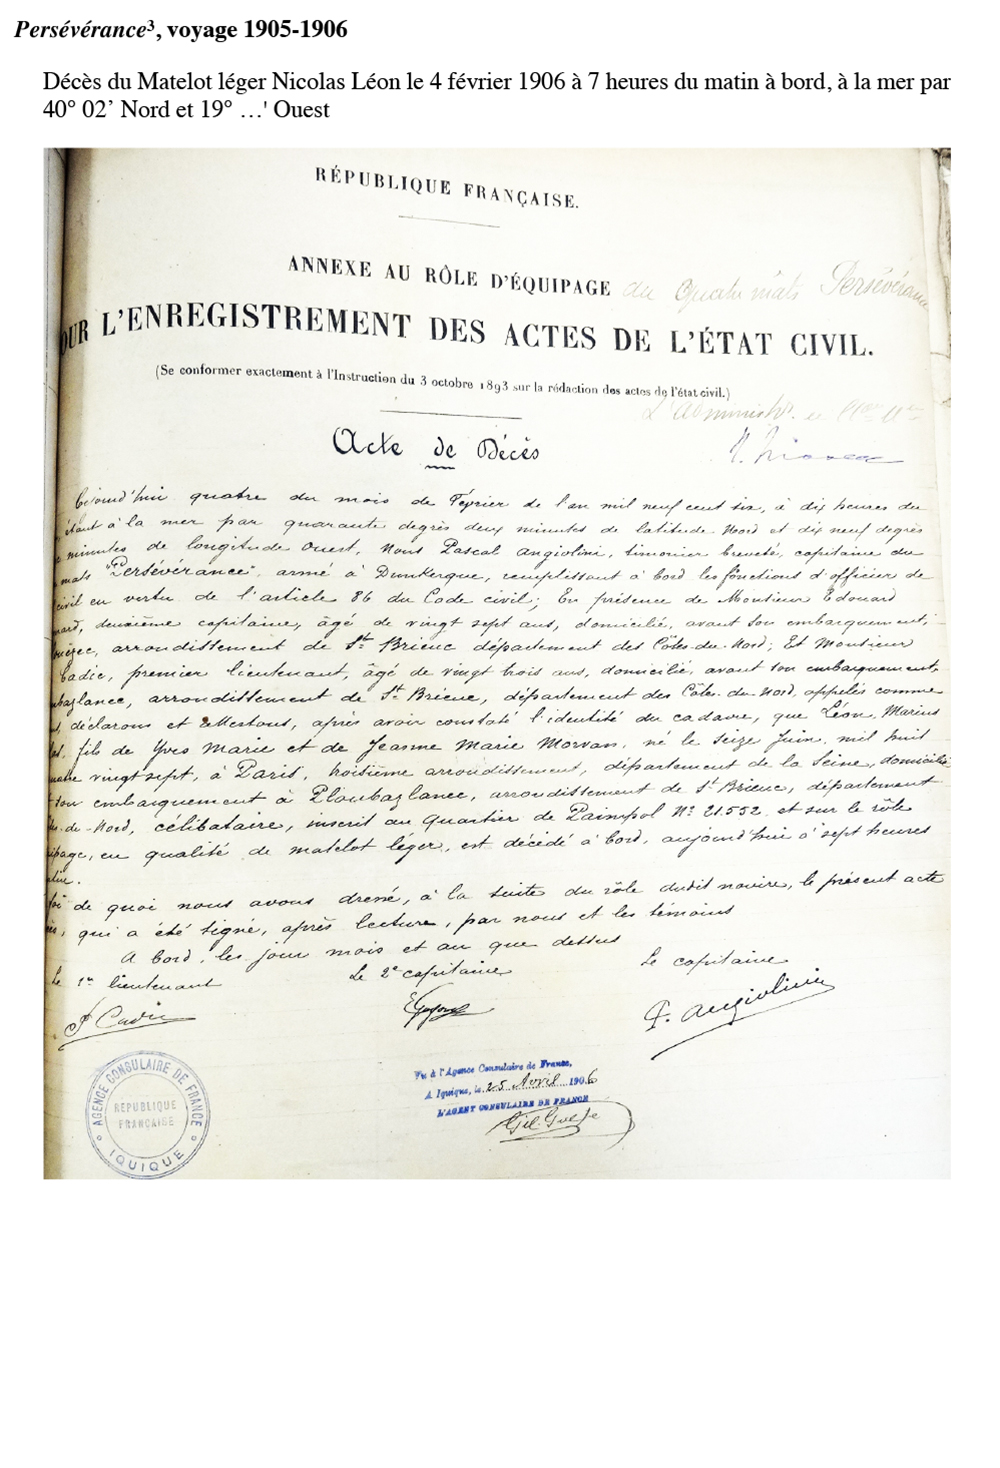 Persévérance³, voyage 1905-1906
Décès du Matelot léger Nicolas Léon le 4 février 1906 à 7 heures du matin à bord, à la mer par
40° 02’ Nord et 19° …' Ouest
RÉPUBLIQUE FRANÇAISE.
ANNEXE AU RÔLE D'ÉQUIPAGE du Quatre mâts Persévérance
OUR L'ENREGISTREMENT DES ACTES DE L'ÉTAT CIVIL.
(Se conformer exactement à l'Instruction du 3 octobre 1893 sur la rédaction des actes de l'état civil.)
L'Administr.
Acte de Décès
Cejourd'hui quatre du mois de Février de l'an mil neuf cent six, à dix heures du
étant à la mer par quarante degrés deux minutes de latitude Nord et dix neuf degrés
minutes de longitude Ouest, Nous Pascal Angiolini, timonier breveté, capitaine du
mats "Persévérance", armé à Dunkerque, remplissant à bord les fonctions d'officier de
civil en vertu de l'article 86 du Code civil; En présence de Monsieur Edouard
deuxième capitaine, âgé de vingt sept ans, domicilié, avant son embarquement,
arrondissement de St. Brieuc département des Côtes-du-Nord; Et Monsieur
Cadic, premier lieutenant, âgé de vingt trois ans, domicilié, avant son embarquement,
bazlance, arrondissement de St. Brieuc, département des Côtes-du-Nord, appelés comme
déclarons et attestons, après avoir constaté l'identité du cadavre, que Léon, Marius
fils de Yves Marie et de Jeanne Marie Morvan, né le seize Juin, mil huit
vingt sept, à Paris, troisième arrondissement, département de la Seine, domicilié
son embarquement à Ploubazlance, arrondissement de St Brieuc, département
-du-Nord, célibataire, inscrit au Quartier de Paimpol No 21.552 et sur le rôle
ipage, en qualité de matelot léger, est décédé à bord, aujourd'hui à sept heures
atin.
foi de quoi nous avons dressé, à la suite du rôle dudit navire, le présent acte
qui a été signé, après lecture, par nous et les témoins
A bord, les jour mois et an que dessus
Le 1er lieutenant Le 2e capitaine Le capitaine
P. Angiolini
AGENCE CONSULAIRE DE FRANCE
RÉPUBLIQUE
FRANÇAISE
IQUIQUE
Vu à l'Agence Consulaire de France,
A Iquique, le 25 Avril 1906
L'AGENT CONSULAIRE DE FRANCE